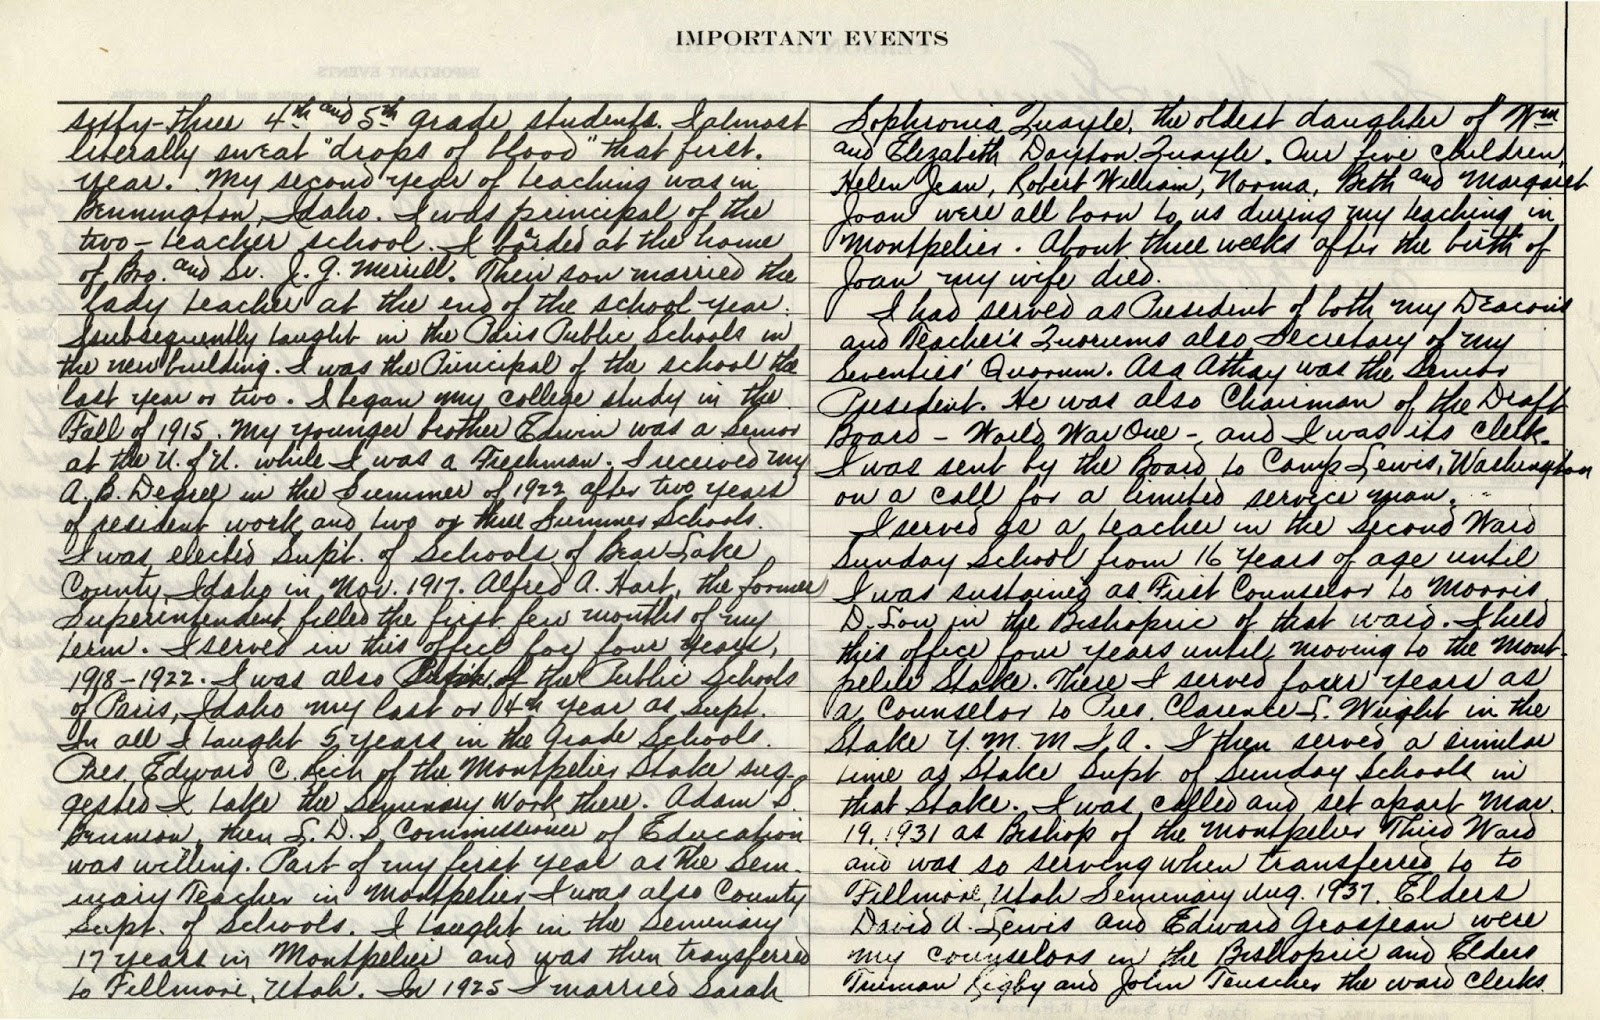 IMPORTANT EVENTS
sixty-three 4th and 5th grade students. I almost
literally sweat "drops of blood" that first.
year. My second year of teaching was in
Bennington, Idaho. I was principal of the
two-teacher school. I boarded at the home
of Bro. and Sr. J. G. Merrill. Their son married the
lady teacher at the end of the school year.
I subsequently taught in the Paris Public Schools in
the new building. I was the Principal of the school the
last year or two. I began my college study in the
Fall of 1915. My younger brother Edwin was a Senior
at the U. of U. while I was a Freshman. I received my
A. B. Degree in the Summer of 1922 after two years
of resident work and two or three Summer Schools.
I was elected Supt. of Schools of Bear Lake
County, Idaho in Nov. 1917. Alfred A. Hart, the former
Superintendent filled the first few months of my
term. I served in this office for four years,
1918-1922. I was also of the Public Schools
of Paris, Idaho my last or 4th year as Supt.
In all I taught 5 years in the Grade Schools.
Pres. Edward C. Rich of the Montpelier Stake sug-
gested I take the Seminary Work there. Adam S.
Bennion, then L. D. S. Commissioner of Education
was willing. Part of my first year as the Sem-
inary Teacher in Montpelier I was also County
Supt. of Schools. I taught in the Seminary
17 years in Montpelier and was then transferred
to Fillmore, Utah. In 1925 I married Sarah
Sophronia Quayle, the oldest daughter of Wm
and Elizabeth Dayton Quayle. Our five children,
Helen Jean, Robert William, Norma, Beth and Margaret
Joan were all born to us during my teaching in
Montpelier. About three weeks after the birth of
Joan my wife died.
I had served as President of both my Deacons
and Teacher's Quorums also Secretary of my
Seventies' Quorum. Asa Athay was the Senior
President. He was also Chairman of the Draft
Board - World War One -, and I was its Clerk.
I was sent by the Board to Camp Lewis, Washington
on a call for a limited service man.
I served as a teacher in the Second Ward
Sunday School from 16 years of age until
I was sustained as First Counselor to Morris
D. Low in the Bishopric of that ward. I held
this office four years until moving to the Mont-
pelier Stake. There I served four years as
a Counselor to Pres. Clarence L. Wright in the
Stake Y. M. M. I. A. I then served a similar
time as Stake Supt of Sunday Schools in
that Stake. I was called and set apart Mar.
19, 1931 as Bishop of the Montpelier Third Ward
and was so serving when transferred to to
Fillmore, Utah Seminary Aug. 1937. Elders
David A. Lewis and Edward Grosjean were
my counselors in the Bishopric and Elders
Truman Rigby and John Teuscher the ward Clerks.